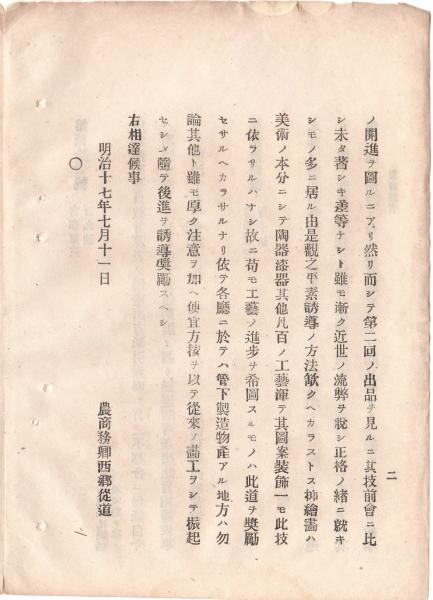 二
ノ開進ヲ圖ルニアリ然リ而シテ第二回ノ出品ヲ見ルニ其技前會ニ比
シ未タ著シキ差等ナシト雖モ漸ク近世ノ流弊ヲ脱シ正格ノ緒ニ就キ
シモノ多ニ居ル由是觀之平素誘導ノ方法歟クヘカラストス抑繪畵ハ
美術ノ本分ニシテ陶器漆器其他凡百ノ工藝渾テ其圖案装飾一モ此技
ニ依ラサルハナシ故ニ苟モ工藝ノ進歩ヲ希圖スルモノハ此道ヲ奬勵
セサルヘカラサルナリ依テ各廳ニ於テハ管下製造物産アル地方ハ勿
論其他ト雖モ厚ク注意ヲ加ヘ便宜方按ヲ以テ從來ノ畵工ヲシテ振起
セシメ隨テ後進ヲ誘導奬勵スヘシ
右相達候事
明治十七年七月十一日
農商務卿西鄕從道
〇